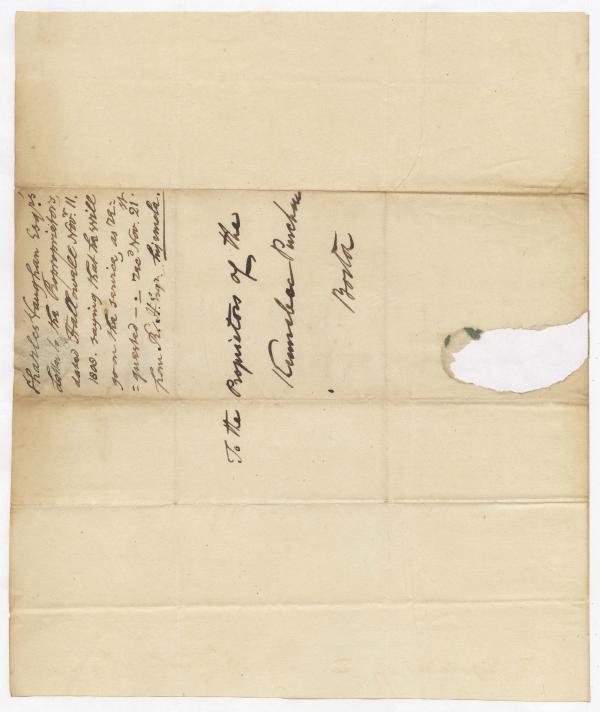 Charles Vaughan Esqr's
letter to the Proprietors,
dated Hallowell Novr. 11.
1808. saying that he will
go on the service, as re-
=quested —: recd Nov. 21.
from R. H. Esqr.
To the Proprietors of the
Kennebec Purchase
Boston